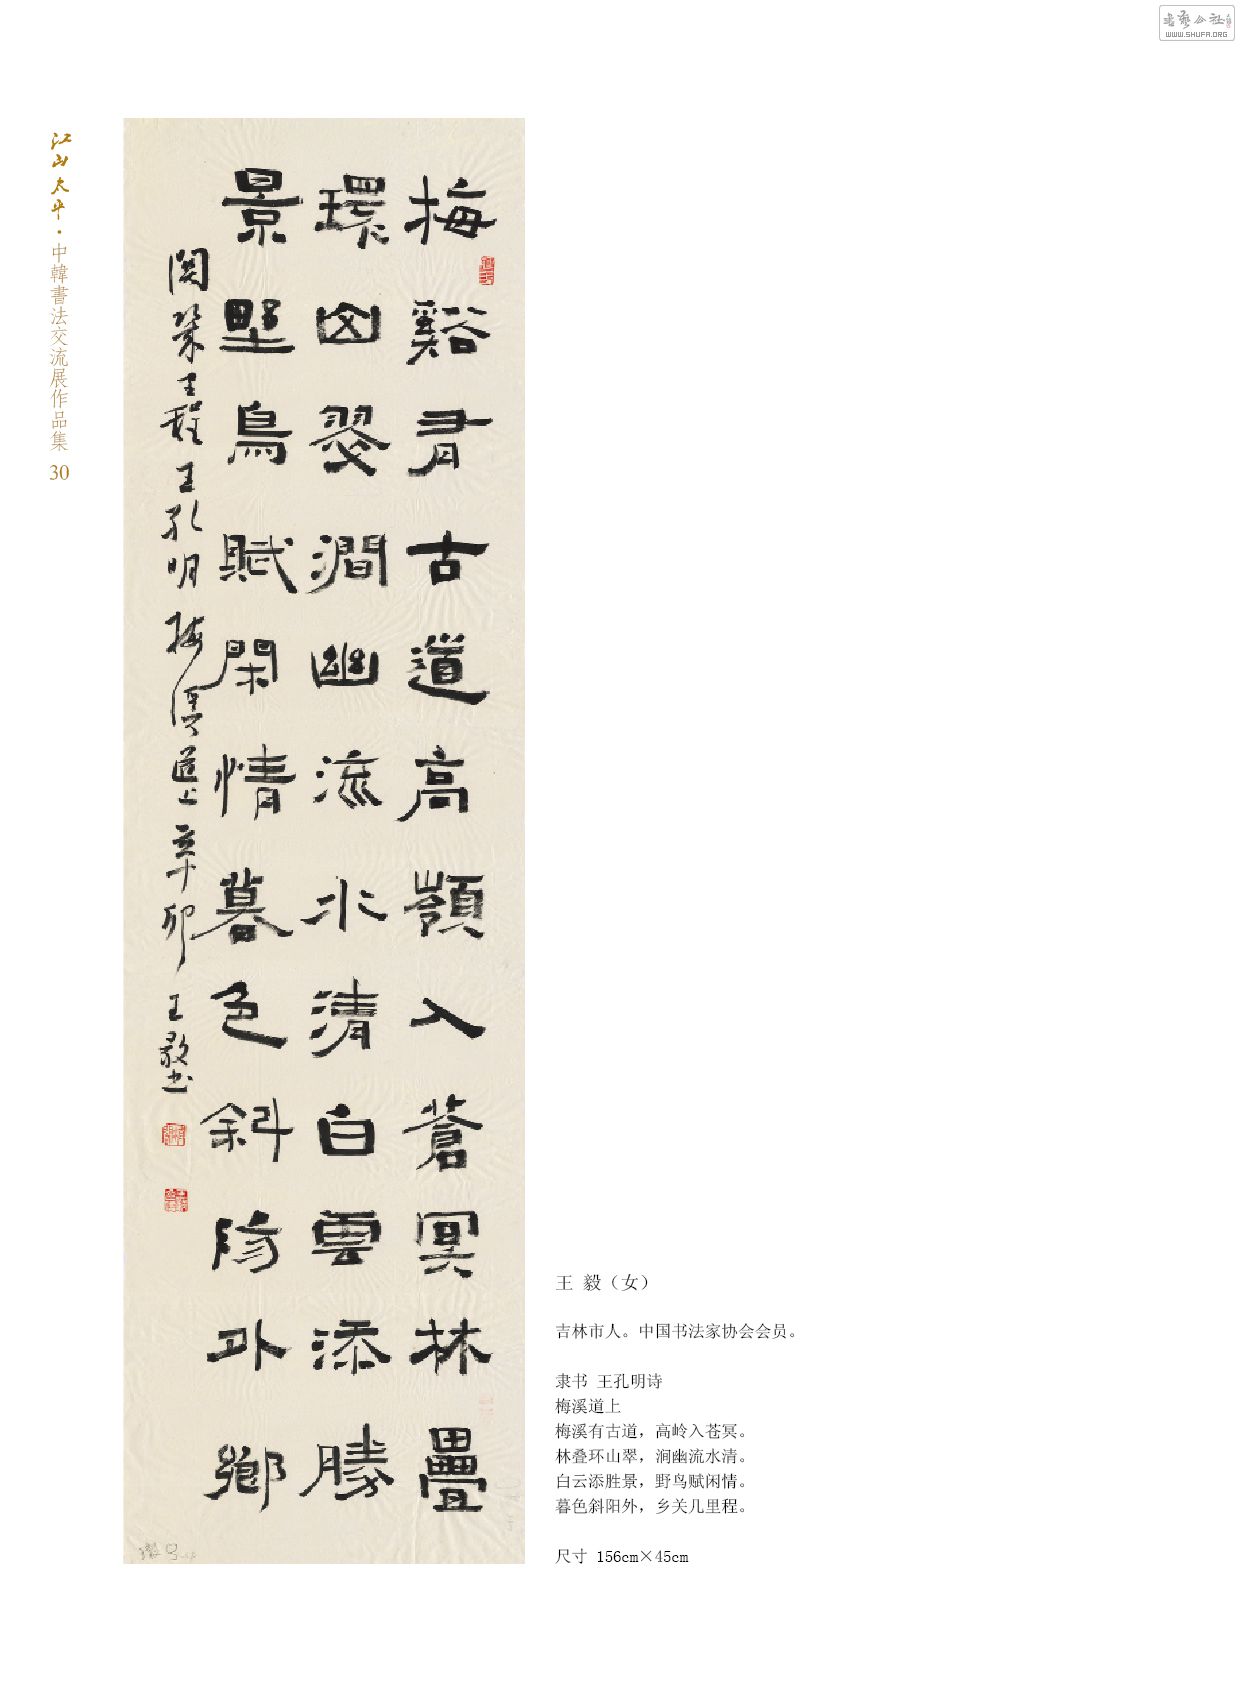 書藝公社
WWW.SHUFA.ORG
江山太平·中韓書法交流展作品集 30
梅谿有古道高嶺入蒼冥林疊
環山翠澗幽流水清白雲添勝
景野鳥賦閑情暮色斜陽外鄉
関幾里程 王孔明梅溪道上 辛卯 王毅书
王 毅（女）
吉林市人。中国书法家协会会员。
隶书 王孔明诗
梅溪道上
梅溪有古道，高岭入苍冥。
林叠环山翠，涧幽流水清。
白云添胜景，野鸟赋闲情。
暮色斜阳外，乡关几里程。
尺寸 156cm×45cm